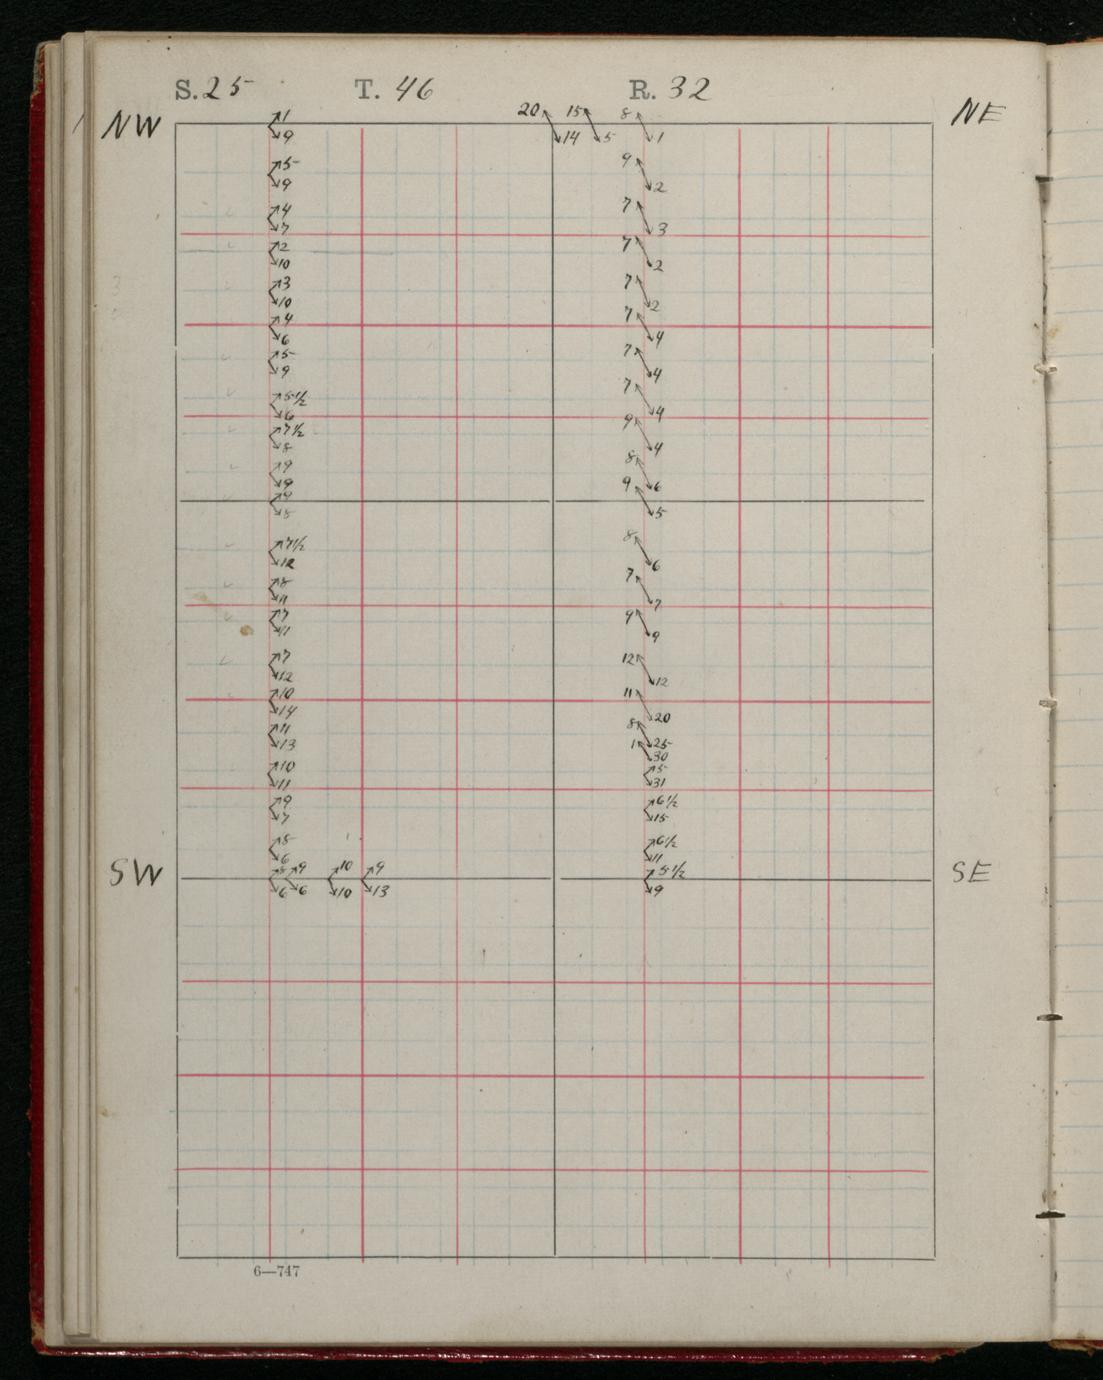 S. 25 T. 46 R. 32
NW NE
1 20 15 8
9 14 5 1
5 9
9 2
4 7
7 3
2 7
10 2
3 7
10 2
4 7
6 4
5 7
9 4
5½ 7
6 4
7½ 9
8 4
9 8
9 6
9 9
8 5
7½ 8
12 6
8 7
11 7
7 9
11 9
7 12
12 12
10 11
14 20
11 8
13 25
1
30
10 5
11 31
9 6½
7 15
8 6½
6 11
SW 8 9 10 9 5½ SE
6 6 10 13 9
6—747